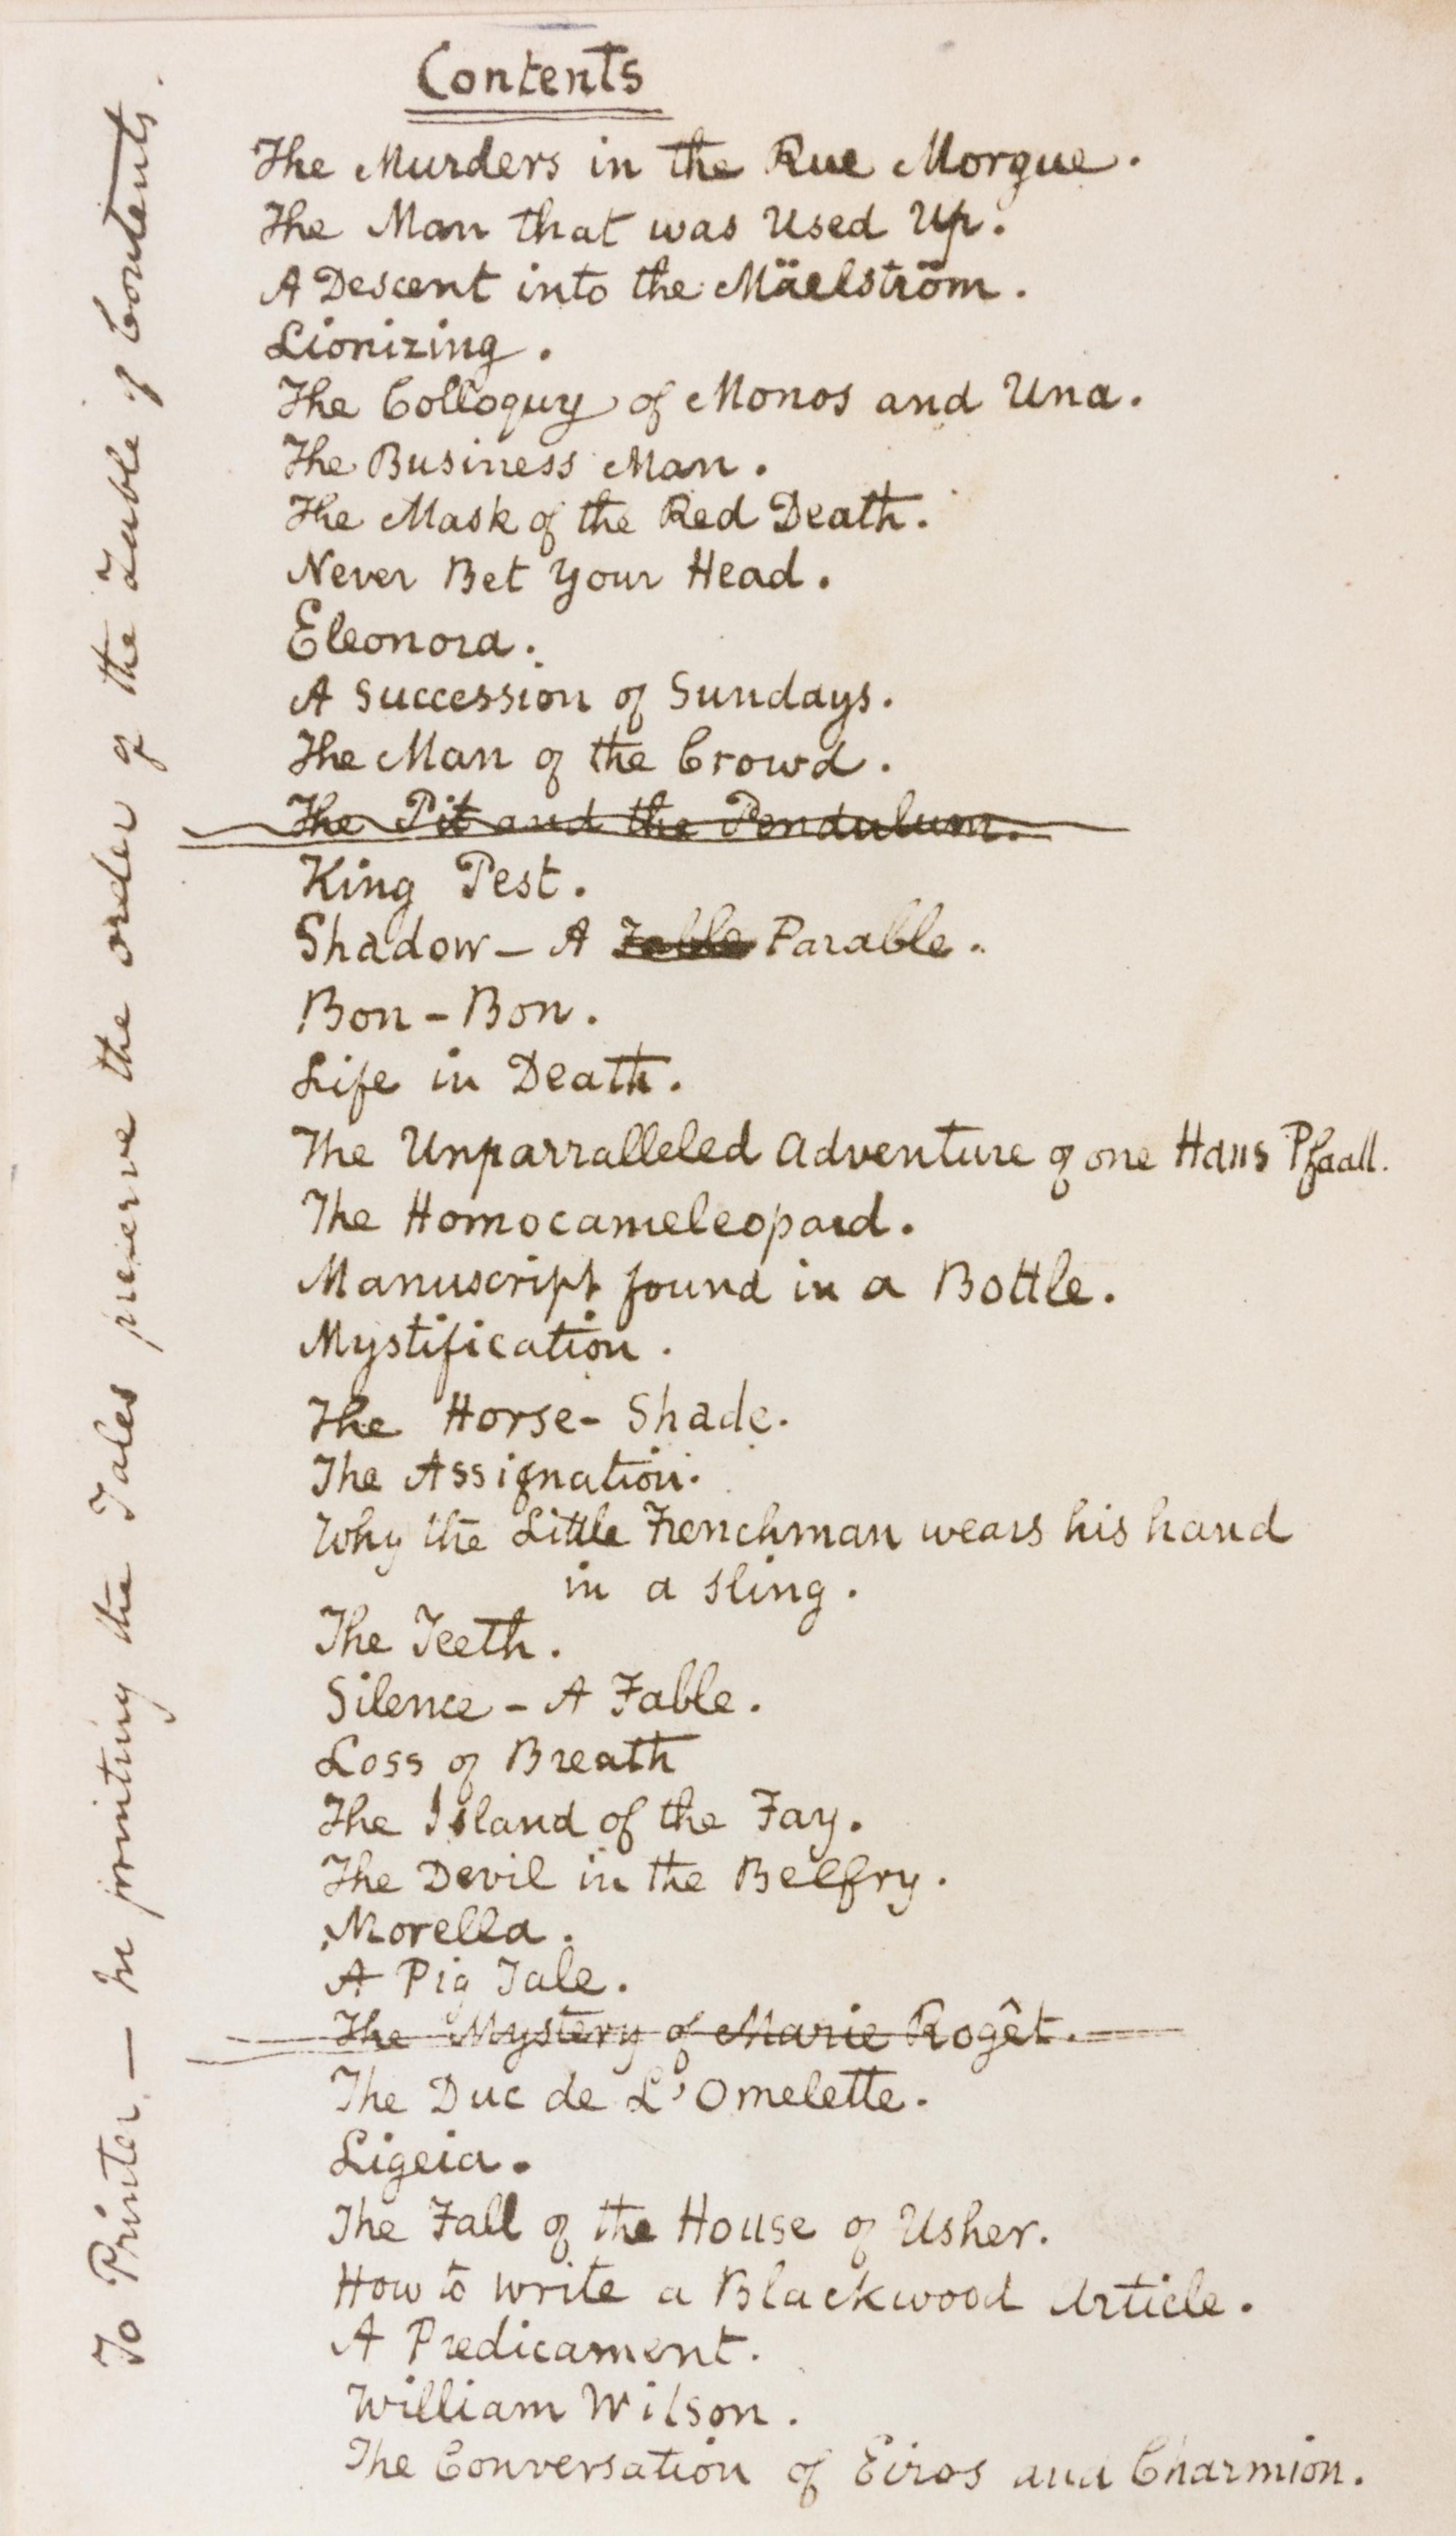 Contents
The Murders in the Rue Morgue.
The Man that was Used Up.
A Descent into the Mäelström.
Lionizing.
The Colloquy of Monos and Una.
The Business Man.
The Mask of the Red Death.
Never Bet your Head.
Eleonora.
A Succession of Sundays.
The Man of the Crowd.
The Pit and the Pendulum.
King Pest.
Shadow – A Fable Parable.
Bon-Bon.
Life in Death.
The Unparralleled Adventure of one Hans Pfaall.
The Homocameleopard.
Manuscript found in a Bottle.
Mystification.
The Horse-Shade.
The Assignation.
Why the Little Frenchman wears his hand
in a sling.
The Teeth.
Silence – A Fable.
Loss of Breath
The Island of the Fay.
The Devil in the Belfry.
Morella.
A Pig Tale.
The Mystery of Marie Rogêt.
The Duc de L'Omelette.
Ligeia.
The Fall of the House of Usher.
How to write a Blackwood Article.
A Predicament.
William Wilson.
The Conversation of Eiros and Charmion.
To Printer — In printing the Tales preserve the order of the Table of Contents.